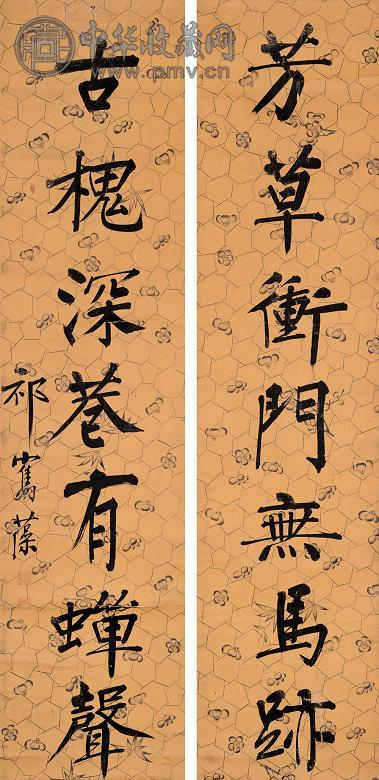 中华收藏网
www.pmv.cn
芳草衝門無馬跡
古槐深巷有蟬聲
祁寯藻